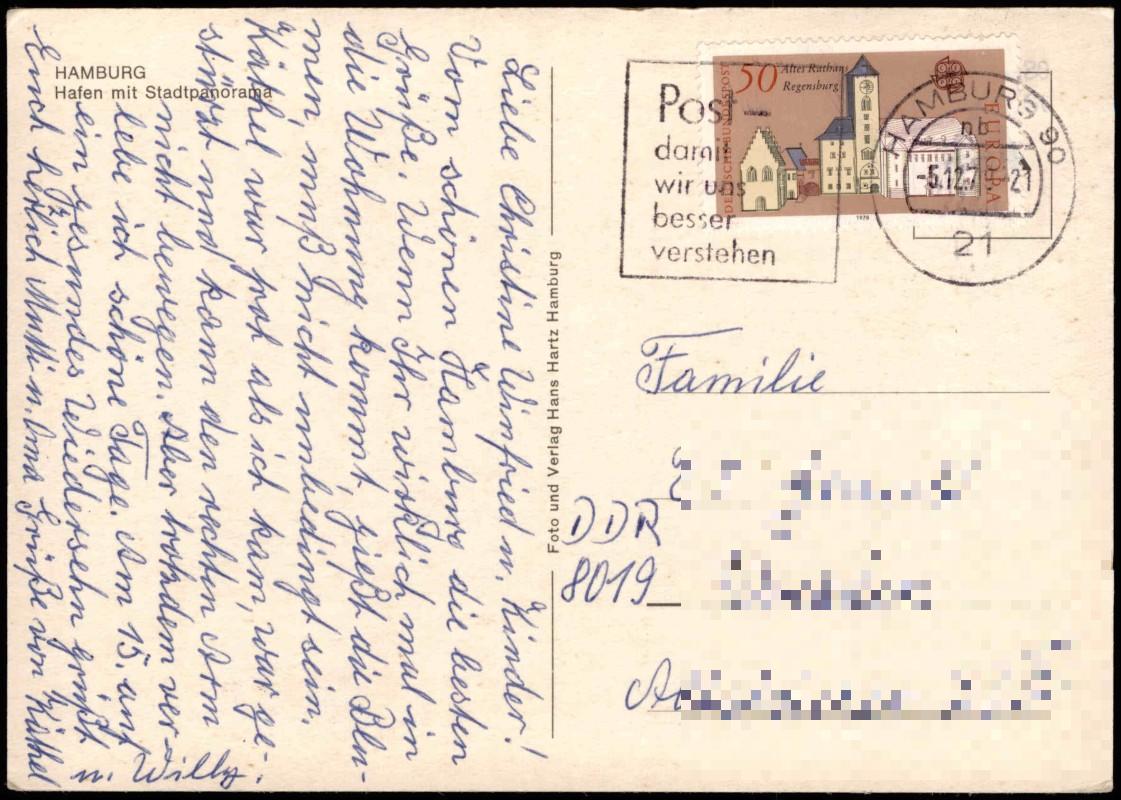 HAMBURG
Hafen mit Stadtpanorama
Liebe Christine Winfried u. Kinder!
Vom schönen Hamburg die besten
Grüße. Wenn Ihr wirklich mal in
die Wohnung kommt, gießt die Blu-
men, muß nicht unbedingt sein.
Käthel war grad als ich kam, war ge-
stürzt und kann den rechten Arm
nicht bewegen. Aber trotzdem ver-
lebe ich schöne Tage. Am 15. auf
ein gesundes Wiedersehn grüßt
Euch herzlich Mutti u. Oma Grüße von Käthel
u. Willy.
Foto und Verlag Hans Hartz Hamburg
Post
damit
wir uns
besser
verstehen
50
Altes Rathaus
Regensburg
DEUTSCHE BUNDESPOST
EUROPA
1978
HAMBURG 90
nb
-5.12.7 -21
21
Familie
DDR
8019